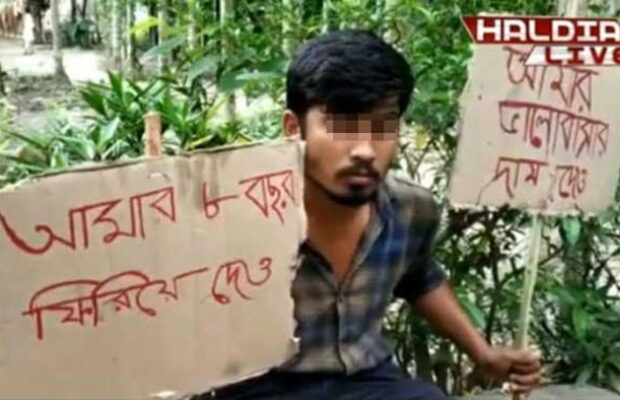 আমার ৮ বছর
ফিরিয়ে দেও
আমার
ভালোবাসার
দাম দেও
HALDIA
LIVE